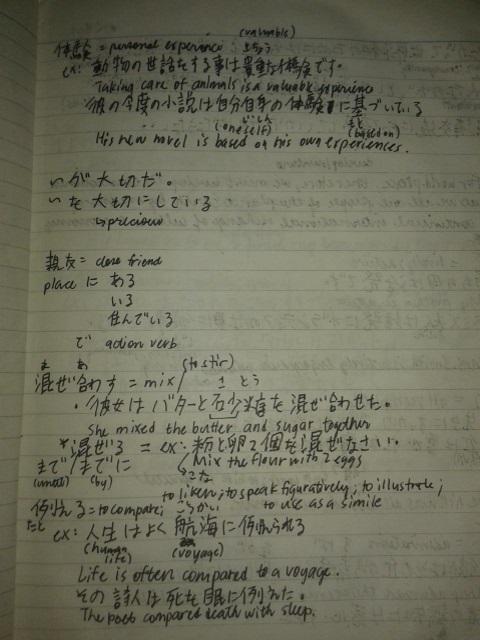 (valuable)
体験 = personal experience きちょう
ex: 動物の世話をする事は貴重な体験です。
Taking care of animals is a valuable experience
彼の今度の小説は自分自身の体験に基づいている
(oneself) じしん もと (based on)
His new novel is based on his own experiences.
いが大切だ。
いを大切にしている
↳ precious
親友 = close friend
place に ある
いる
住んでいる
で action verb
ま あ (to stir)
混ぜ合わす = mix
さ とう
・彼女はバターと砂糖を混ぜ合わせた。
She mixed the butter and sugar together
*混ぜる = ex: 粉と卵2個を混ぜなさい。
まで/までに こな Mix the flour with 2 eggs
(until) (by)
to liken; to speak figuratively; to illustrate;
例える = to compare; to use as a simile
たと こうかい
ex: 人生はよく航海に例えられる
(human life) (voyage)
Life is often compared to a voyage.
その詩人は死を眠に例えた。
The poet compared death with sleep.